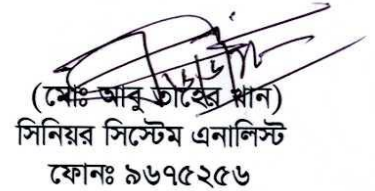 (মোঃ আবু তাহের খান)
সিনিয়র সিস্টেম এনালিস্ট
ফোনঃ ৯৬৭৫২৫৬